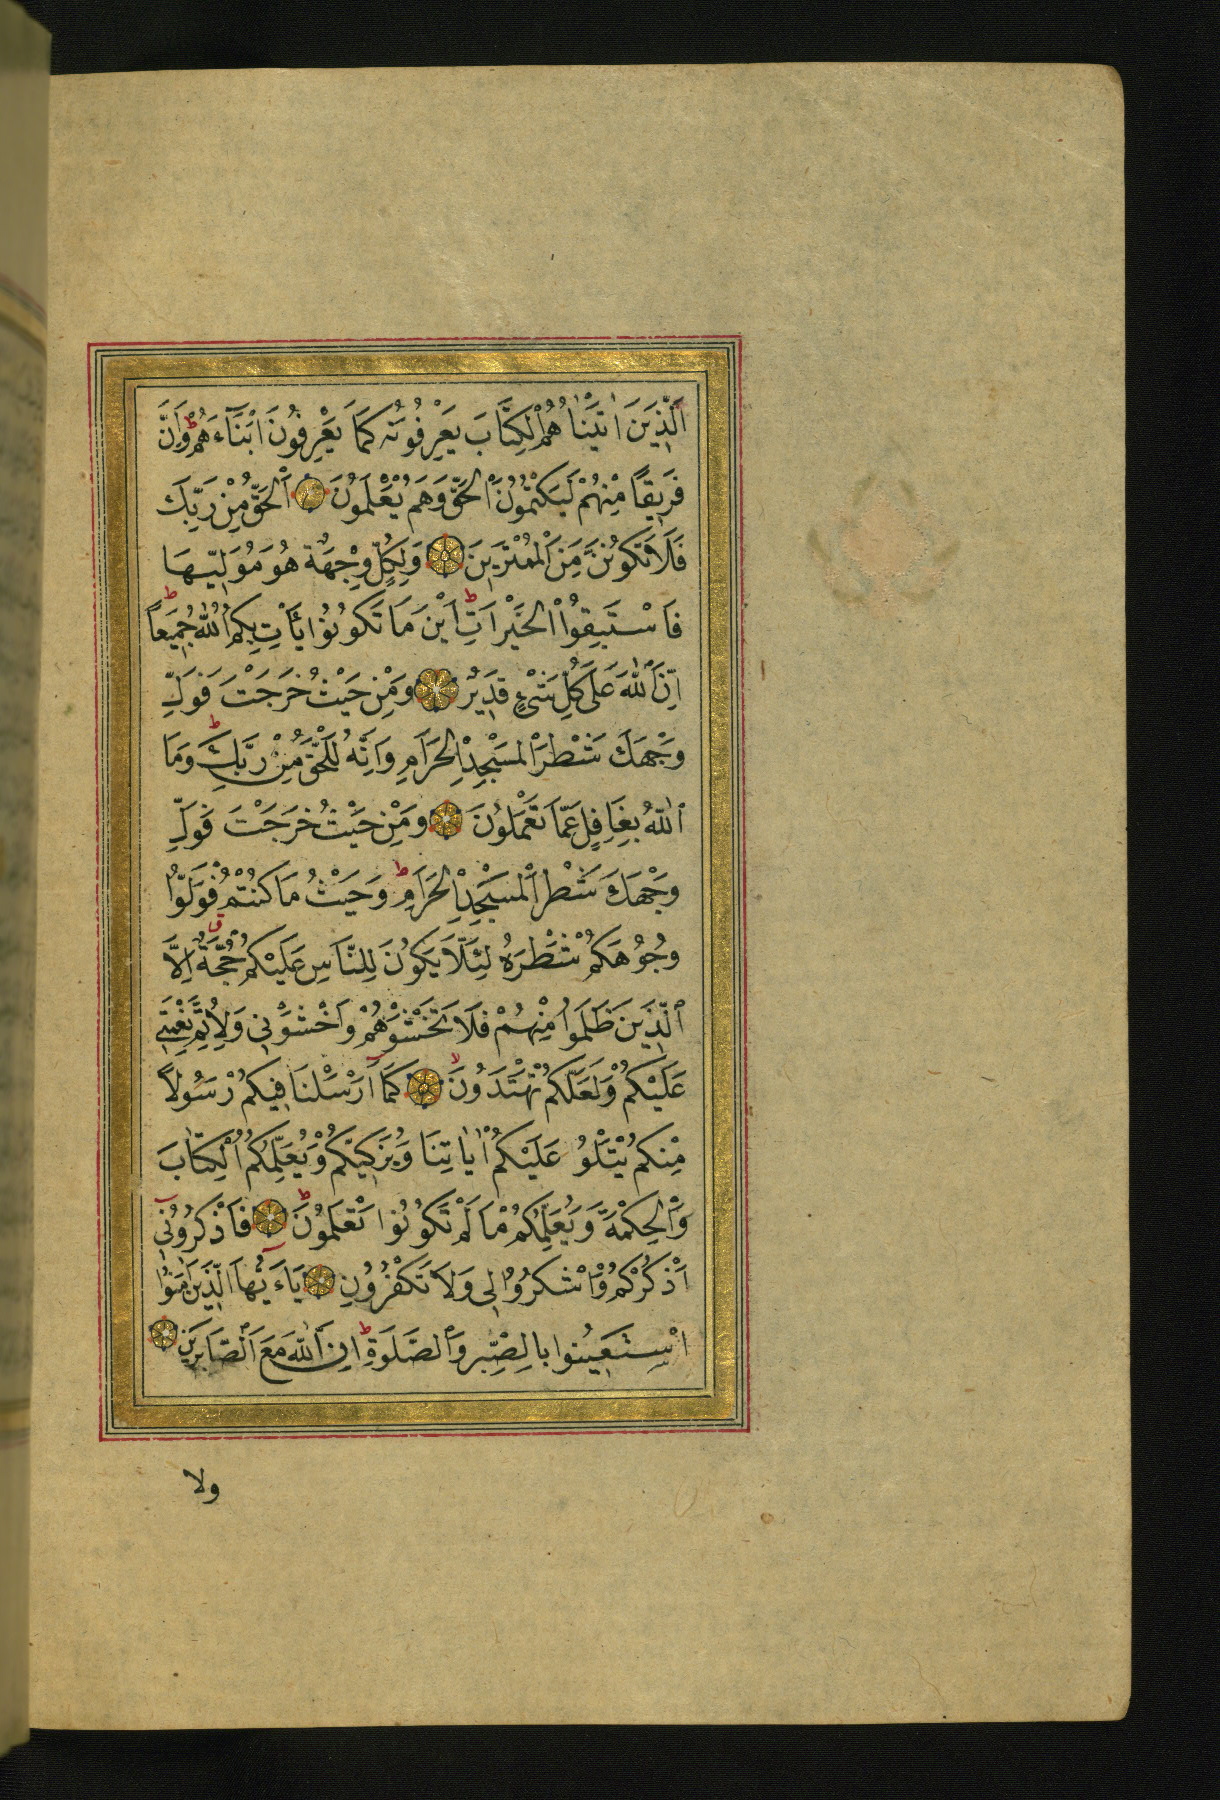 اَلَّذِينَ اٰتَيْنَاهُمُ الْكِتَابَ يَعْرِفُونَهُ كَمَا يَعْرِفُونَ اَبْنَآءَهُمْ ط وَاِنَّ
فَرِيقًا مِنْهُمْ لَيَكْتُمُونَ الْحَقَّ وَهُمْ يَعْلَمُونَ اَلْحَقُّ مِنْ رَبِّكَ
فَلَا تَكُونَنَّ مِنَ الْمُمْتَرِينَ وَلِكُلٍّ وِجْهَةٌ هُوَ مُوَلِّيهَا
فَاسْتَبِقُوا الْخَيْرَاتِ ط اَيْنَ مَا تَكُونُوا يَأْتِ بِكُمُ اللّٰهُ جَمِيعًا ط
اِنَّ اللّٰهَ عَلَى كُلِّ شَىْءٍ قَدِيرٌ وَمِنْ حَيْثُ خَرَجْتَ فَوَلِّ
وَجْهَكَ شَطْرَ الْمَسْجِدِ الْحَرَامِ وَاِنَّهُ لَلْحَقُّ مِنْ رَبِّكَ ط وَمَا
اللّٰهُ بِغَافِلٍ عَمَّا تَعْمَلُونَ وَمِنْ حَيْثُ خَرَجْتَ فَوَلِّ
وَجْهَكَ شَطْرَ الْمَسْجِدِ الْحَرَامِ ط وَحَيْثُ مَا كُنْتُمْ فَوَلُّوا
وُجُوهَكُمْ شَطْرَهُ لِئَلَّا يَكُونَ لِلنَّاسِ عَلَيْكُمْ حُجَّةٌ ق اِلَّا
الَّذِينَ ظَلَمُوا مِنْهُمْ فَلَا تَخْشَوْهُمْ وَاخْشَوْنِى وَلِاُتِمَّ نِعْمَتِى
عَلَيْكُمْ وَلَعَلَّكُمْ تَهْتَدُونَ لا كَمَآ اَرْسَلْنَا فِيكُمْ رَسُولًا
مِنْكُمْ يَتْلُوا عَلَيْكُمْ اٰيَاتِنَا وَيُزَكِّيكُمْ وَيُعَلِّمُكُمُ الْكِتَابَ
وَالْحِكْمَةَ وَيُعَلِّمُكُمْ مَا لَمْ تَكُونُوا تَعْلَمُونَ ط فَاذْكُرُونِىٓ
اَذْكُرْكُمْ وَاشْكُرُوا لِى وَلَا تَكْفُرُونِ يَآءَيُّهَا الَّذِينَ اٰمَنُوا
اسْتَعِينُوا بِالصَّبْرِ وَالصَّلٰوةِ ط اِنَّ اللّٰهَ مَعَ الصَّابِرِينَ
ولا